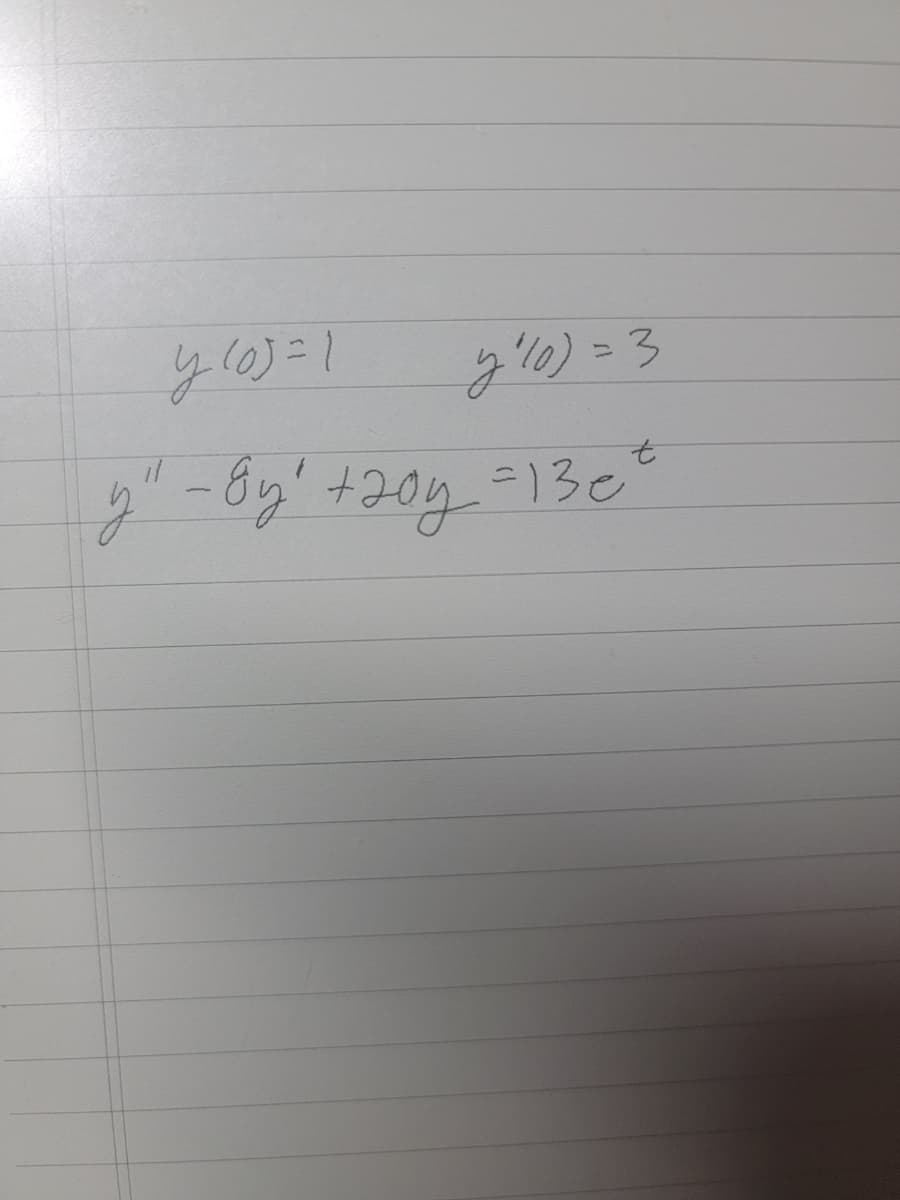 y(0)=1 y'(0)=3
y"-8y'+20y=13e^t